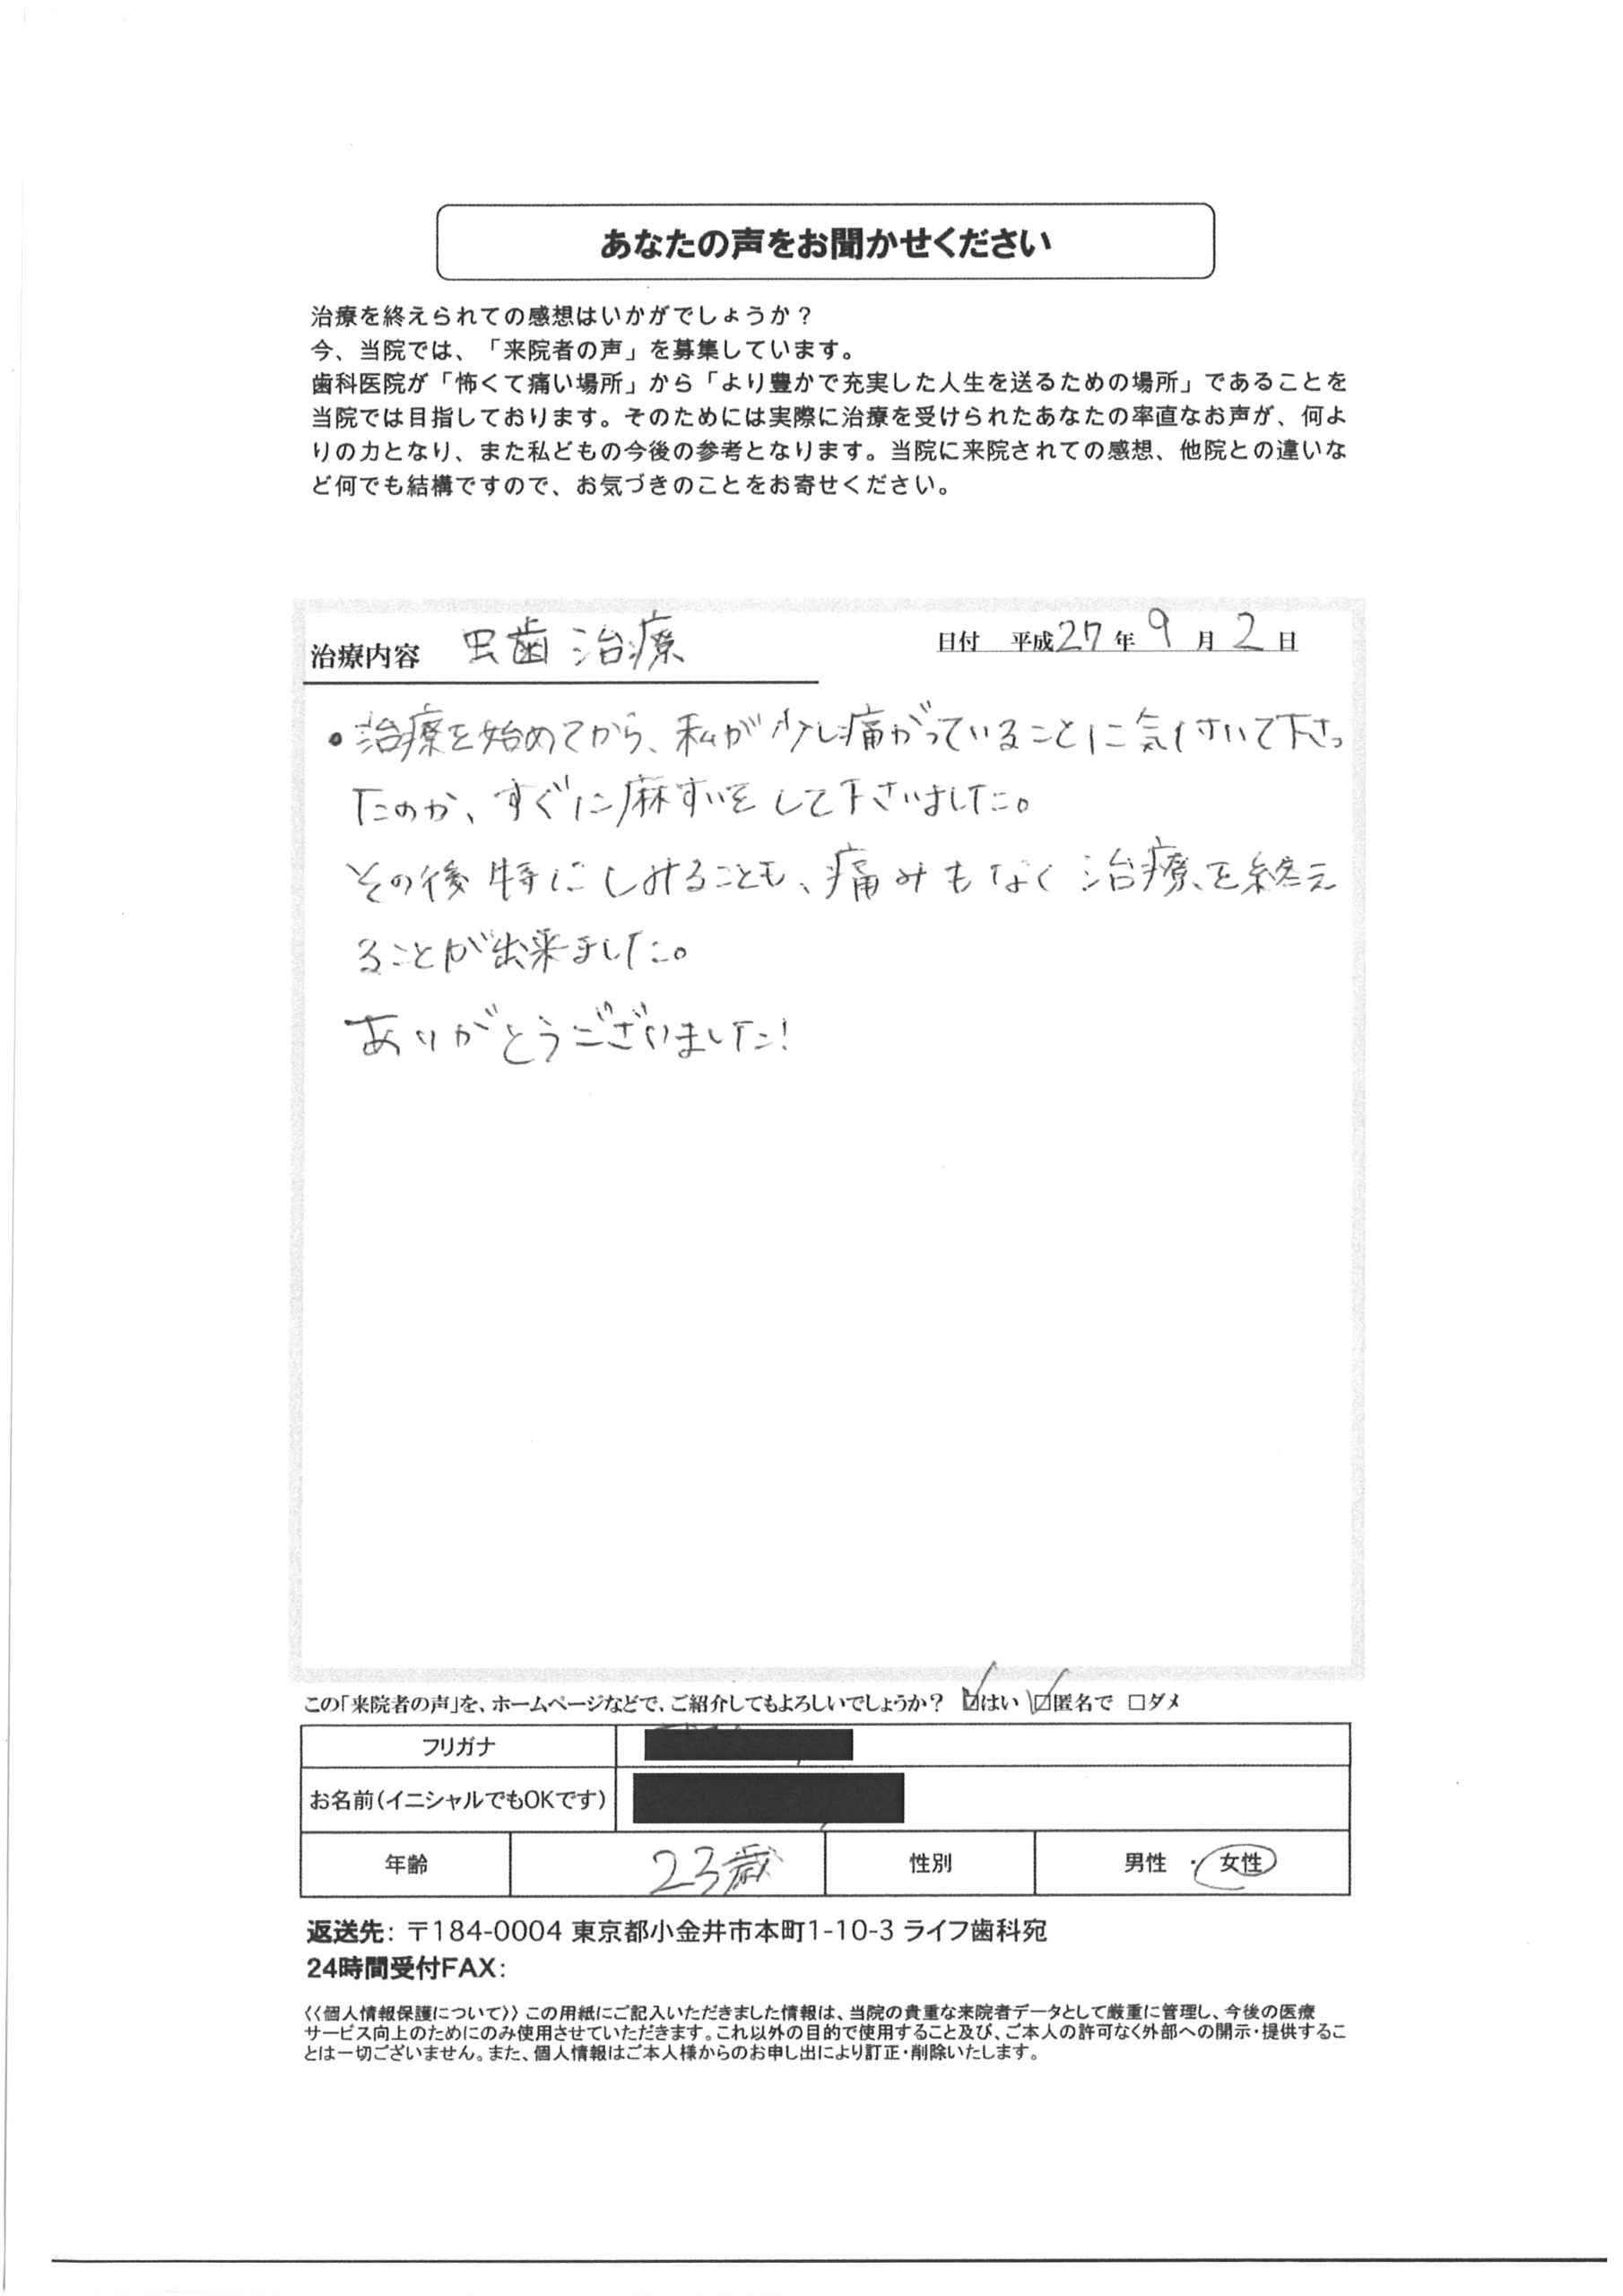 あなたの声をお聞かせください
治療を終えられての感想はいかがでしょうか？
今、当院では、「来院者の声」を募集しています。
歯科医院が「怖くて痛い場所」から「より豊かで充実した人生を送るための場所」であることを
当院では目指しております。そのためには実際に治療を受けられたあなたの率直なお声が、何よ
りの力となり、また私どもの今後の参考となります。当院に来院されての感想、他院との違いな
ど何でも結構ですので、お気づきのことをお寄せください。
治療内容 虫歯治療 日付 平成27年9月2日
・治療を始めてから、私が少し痛がっていることに気付いて下さっ
たのか、すぐに麻すいをして下さいました。
その後特にしみることも、痛みもなく治療を終え
ることが出来ました。
ありがとうございました！
この「来院者の声」を、ホームページなどで、ご紹介してもよろしいでしょうか？ ☑はい ☑匿名で □ダメ
フリガナ
お名前（イニシャルでもOKです）
年齢 23歳 性別 男性・女性
返送先：〒184-0004 東京都小金井市本町1-10-3 ライフ歯科宛
24時間受付FAX：
〈〈個人情報保護について〉〉この用紙にご記入いただきました情報は、当院の貴重な来院者データとして厳重に管理し、今後の医療
サービス向上のためにのみ使用させていただきます。これ以外の目的で使用すること及び、ご本人の許可なく外部への開示・提供するこ
とは一切ございません。また、個人情報はご本人様からのお申し出により訂正・削除いたします。